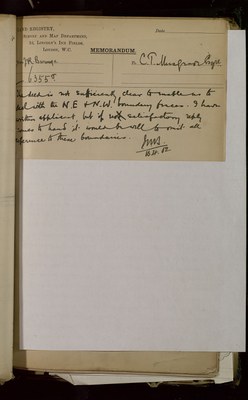 REGISTRY,
SURVEY AND MAP DEPARTMENT,
LINCOLN'S INN FIELDS,
LONDON, W.C.
Date
MEMORANDUM.
To C. T. Musgrave Esqre
63558
The deed is not sufficiently clear to enable us to
deal with the N.E. & N.W. boundary fences. I have
written applicant, but if no satisfactory reply
comes to hand it would be well to omit all
reference to these boundaries.